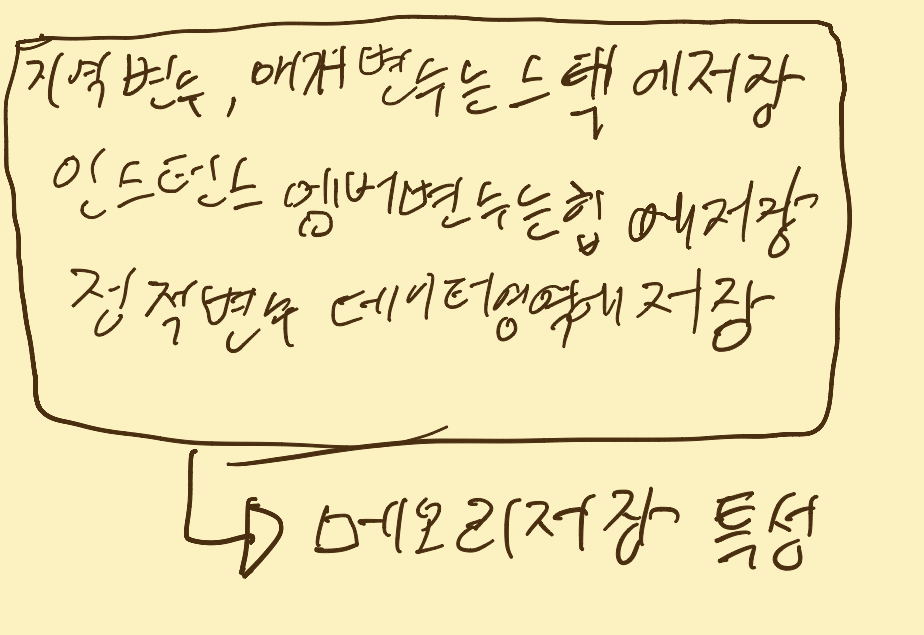 지역변수, 매개변수는 스택에 저장
인스턴스 멤버변수는 힙에 저장
정적변수 데이터영역에 저장
메모리저장 특성